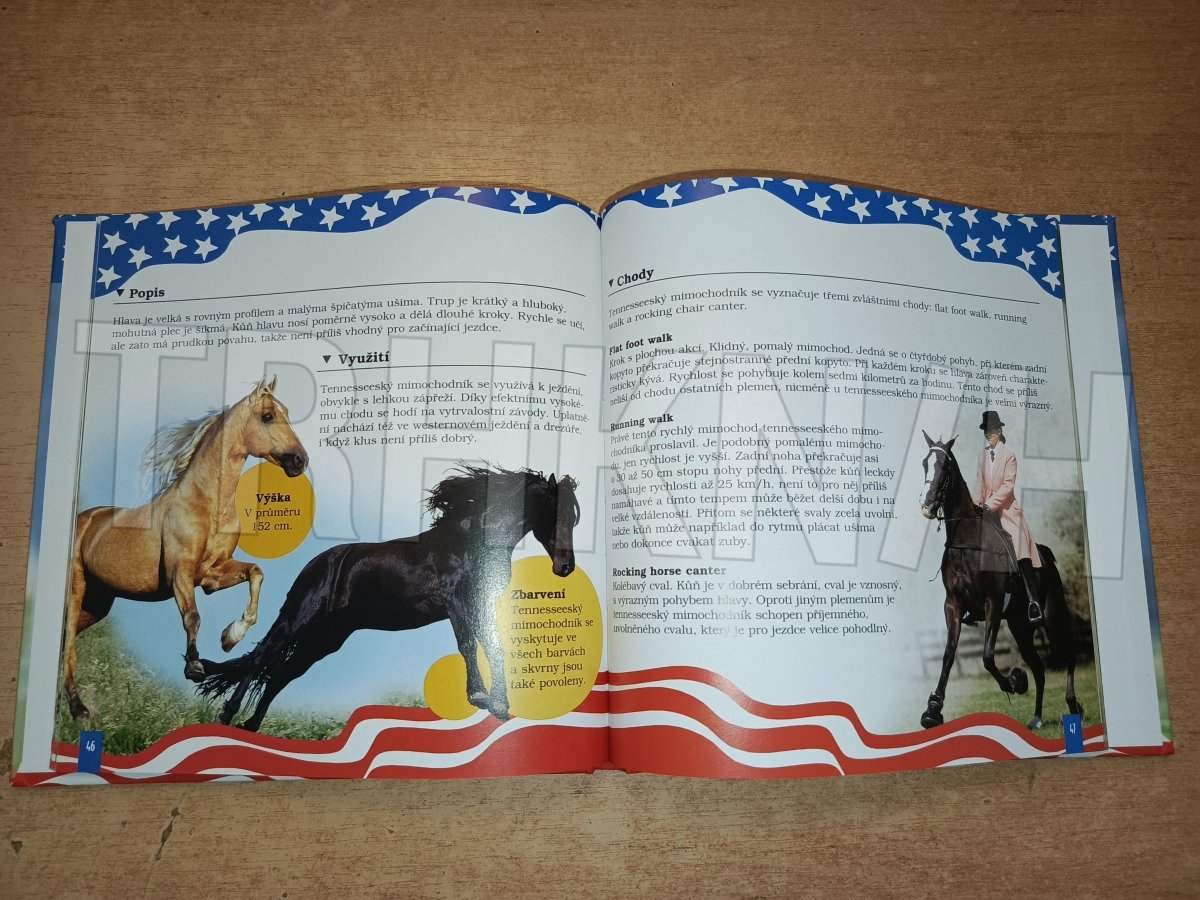 Popis
Hlava je velká s rovným profilem a malýma špičatýma ušima. Trup je krátký a hluboký,
mohutná plec je šikmá. Kůň hlavu nosí poměrně vysoko a dělá dlouhé kroky. Rychle se učí,
ale zato má prudkou povahu, takže není příliš vhodný pro začínající jezdce.
Využití
Tennesseeský mimochodník se využívá k ježdění,
obvykle s lehkou zápřeží. Díky efektnímu vysoké-
mu chodu se hodí na vytrvalostní závody. Uplatně-
ní nachází též ve westernovém ježdění a drezúře,
i když klus není příliš dobrý.
Výška
V průměru
152 cm.
Zbarvení
Tennesseeský
mimochodník se
vyskytuje ve
všech barvách
a skvrny jsou
také povoleny.
46
Chody
Tennesseeský mimochodník se vyznačuje třemi zvláštními chody: flat foot walk, running
walk a rocking chair canter.
Flat foot walk
Krok s plochou akcí. Klidný, pomalý mimochod. Jedná se o čtyřdobý pohyb, při kterém zadní
kopyto překračuje stejnostranné přední kopyto. Při každém kroku se hlava zároveň charakte-
risticky kývá. Rychlost se pohybuje kolem sedmi kilometrů za hodinu. Tento chod se příliš
neliší od chodu ostatních plemen, nicméně u tennesseeského mimochodníka je velmi výrazný.
Running walk
Právě tento rychlý mimochod tennesseeského mimo-
chodníka proslavil. Je podobný pomalému mimocho-
du, jen rychlost je vyšší. Zadní noha překračuje asi
o 30 až 50 cm stopu nohy přední. Přestože kůň leckdy
dosahuje rychlosti až 25 km/h, není to pro něj příliš
namáhavé a tímto tempem může běžet delší dobu i na
velké vzdálenosti. Přitom se některé svaly zcela uvolní,
takže kůň může například do rytmu plácat ušima
nebo dokonce cvakat zuby.
Rocking horse canter
Kolébavý cval. Kůň je v dobrém sebrání, cval je vznosný,
s výrazným pohybem hlavy. Oproti jiným plemenům je
tennesseeský mimochodník schopen příjemného,
uvolněného cvalu, který je pro jezdce velice pohodlný.
47
TRHKNIH